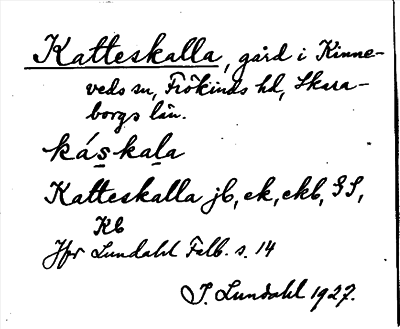 Katteskalla, gård i Kinne-
veds sn, Frökinds hd, Skara-
borgs län.
káskala
Katteskalla jb, ek, ekb, GS,
Kb
Jfr Lundahl Falb. s. 14
I. Lundahl 1927.